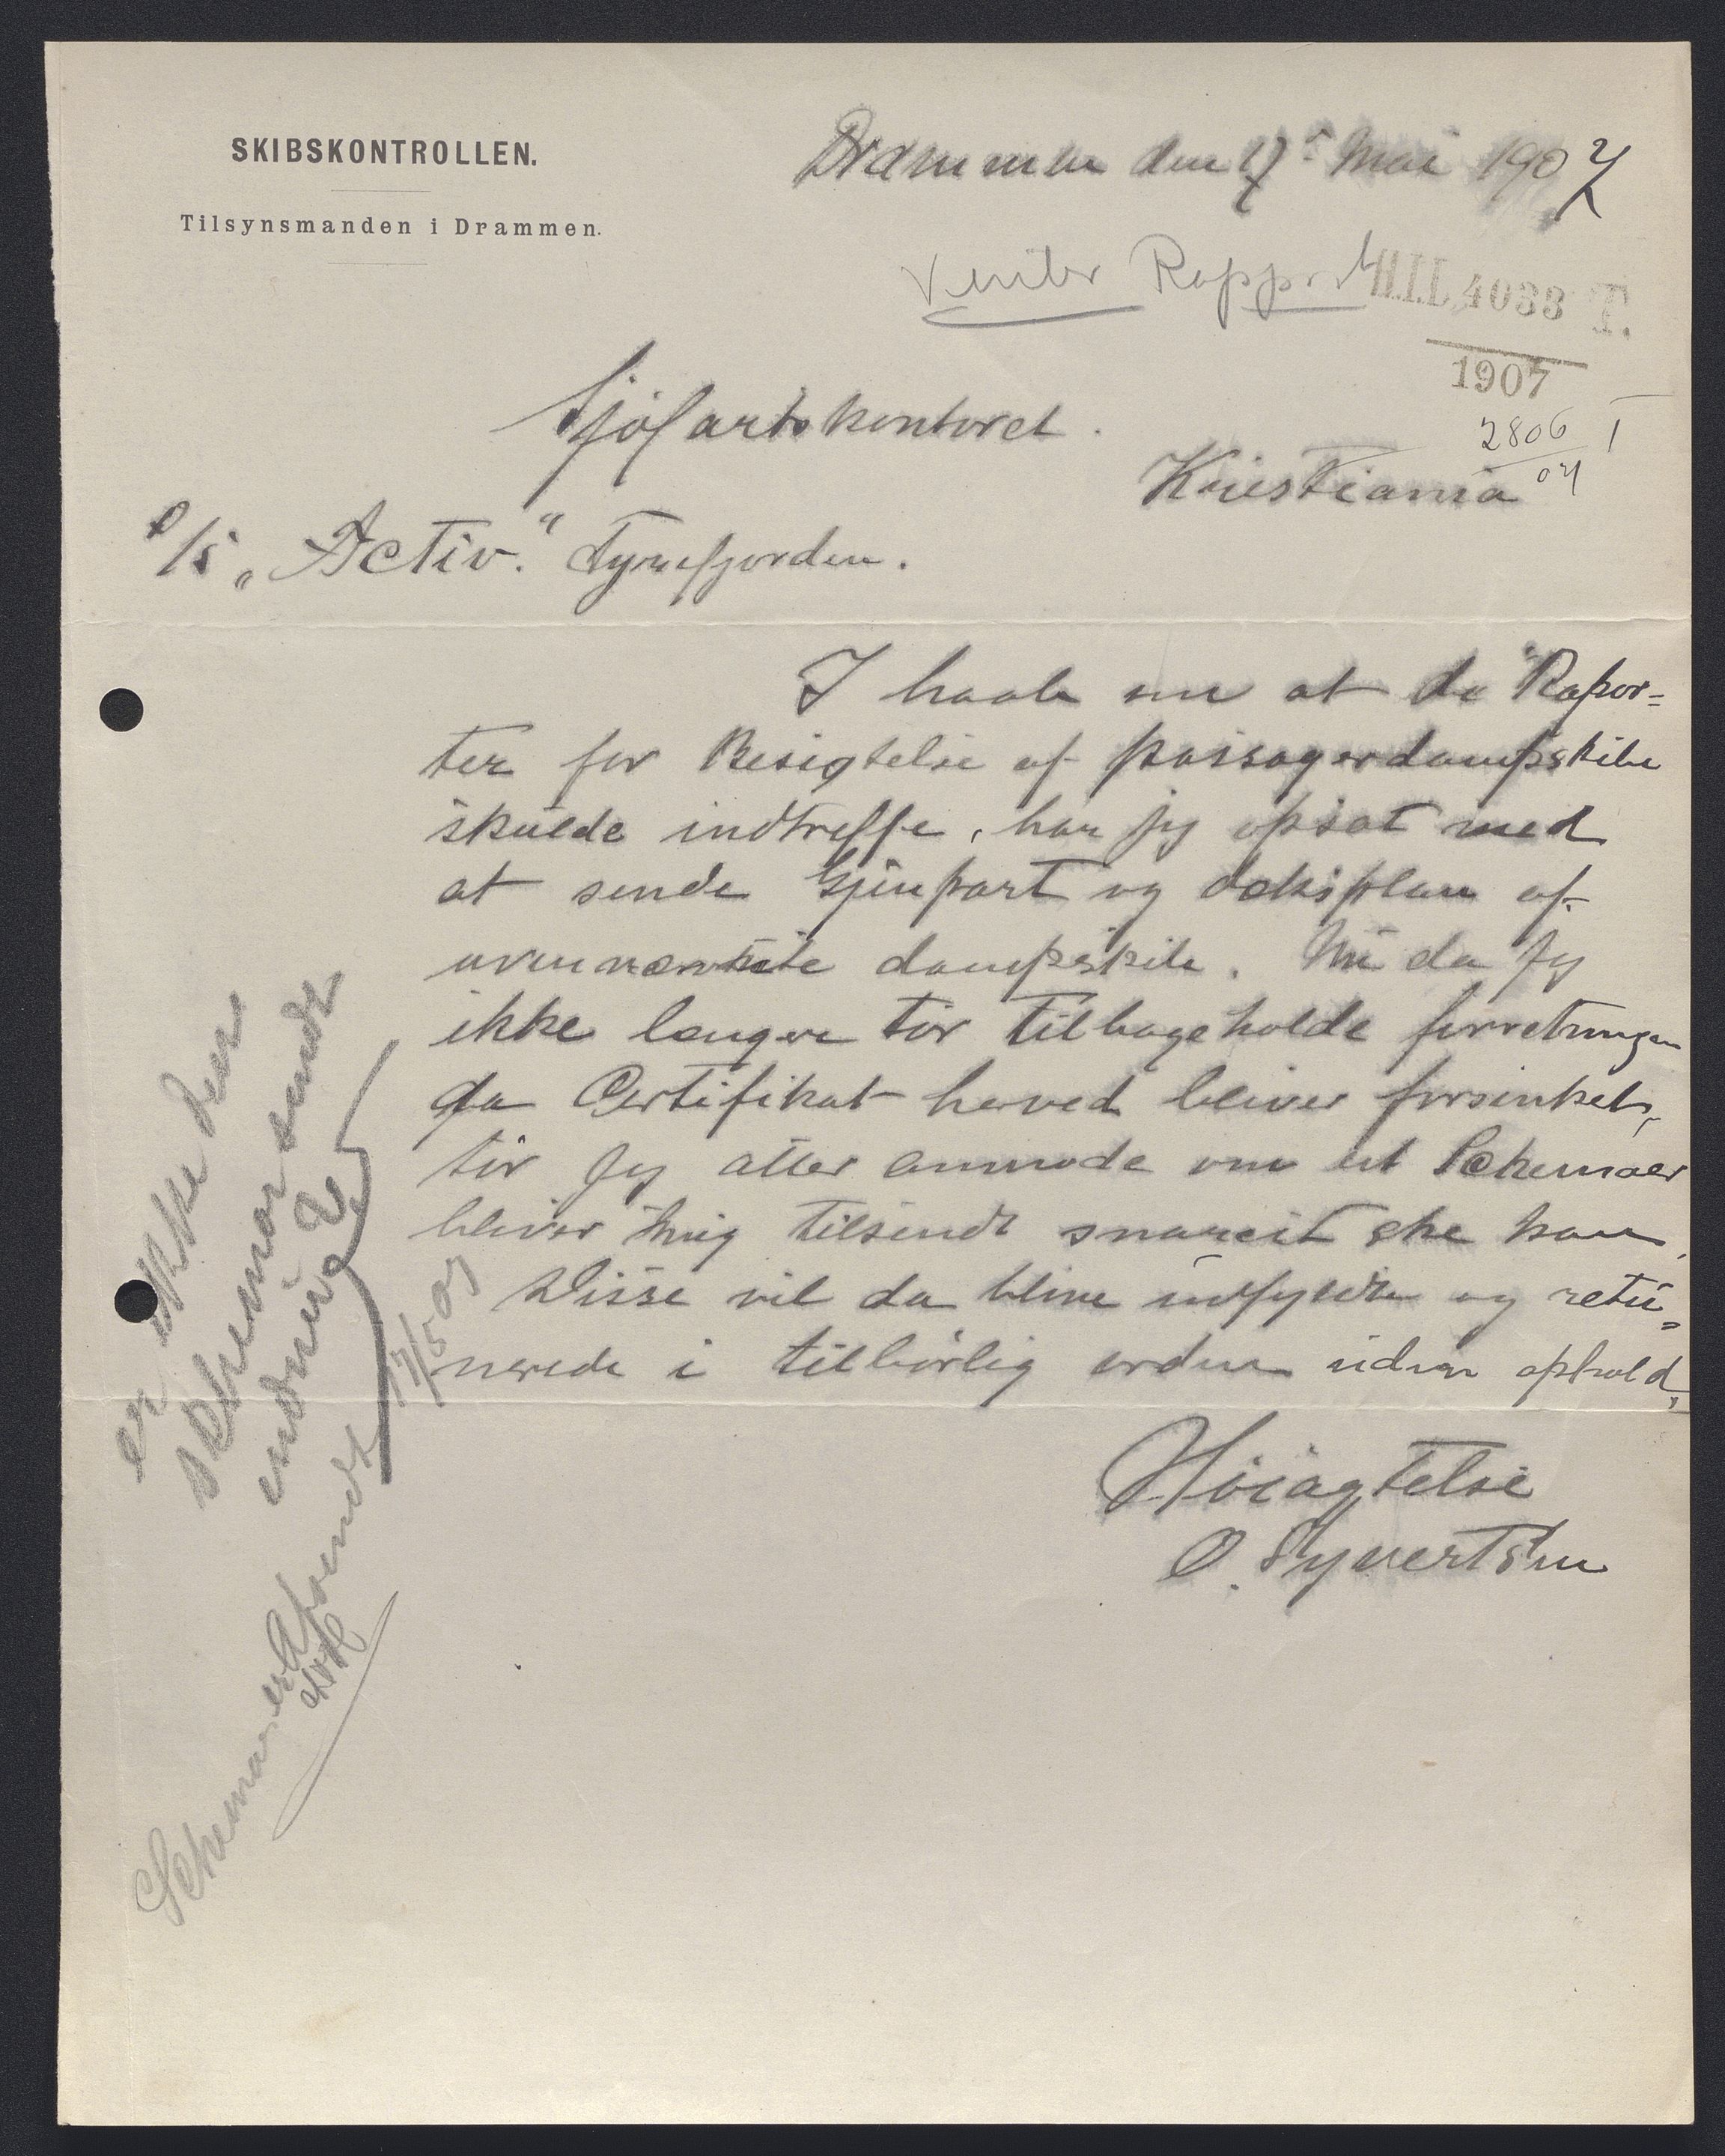 SKIBSKONTROLLEN.
Tilsynsmanden i Drammen.
Drammen den 17de Mai 1907
Venter Rapport
H.I.L 4033 T.
1907
2806 I
07
Sjøfartskontoret.
Kristiania
D/S „Activ." Tyrifjorden.
I haab om at de Rapor=
ter for Besigtelse af passagerdampskibe
skulde indtreffe, har jeg opsat med
at sende Gjenpart og dæksplan af
ovennævnte dampskib. Nu da jeg
ikke længere tør tilbageholde forretningen
da Certifikat herved bliver forsinket,
tør jeg atter anmode om at Schemaer
bliver mig tilsendt snarest ske kan.
Disse vil da blive udfyldte og retu=
nerede i tilbørlig orden uden ophold,
Høiagtelse
O. Syvertsen
er ikke den
skemaer sendt
endnu?
Schemaer er afsendt 17/5 07